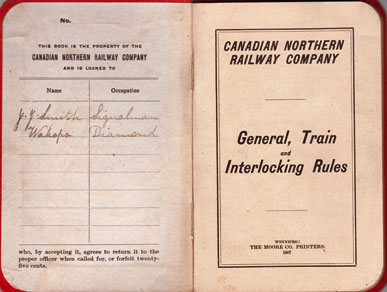 No.
THIS BOOK IS THE PROPERTY OF THE
CANADIAN NORTHERN RAILWAY COMPANY
AND IS LOANED TO
Name Occupation
J. J. Smith Signalman
Wakopa Diamond
who, by accepting it, agrees to return it to the
proper officer when called for, or forfeit twenty-
five cents.
CANADIAN NORTHERN
RAILWAY COMPANY
General, Train
and
Interlocking Rules
WINNIPEG:
THE MOORE CO. PRINTERS.
1907